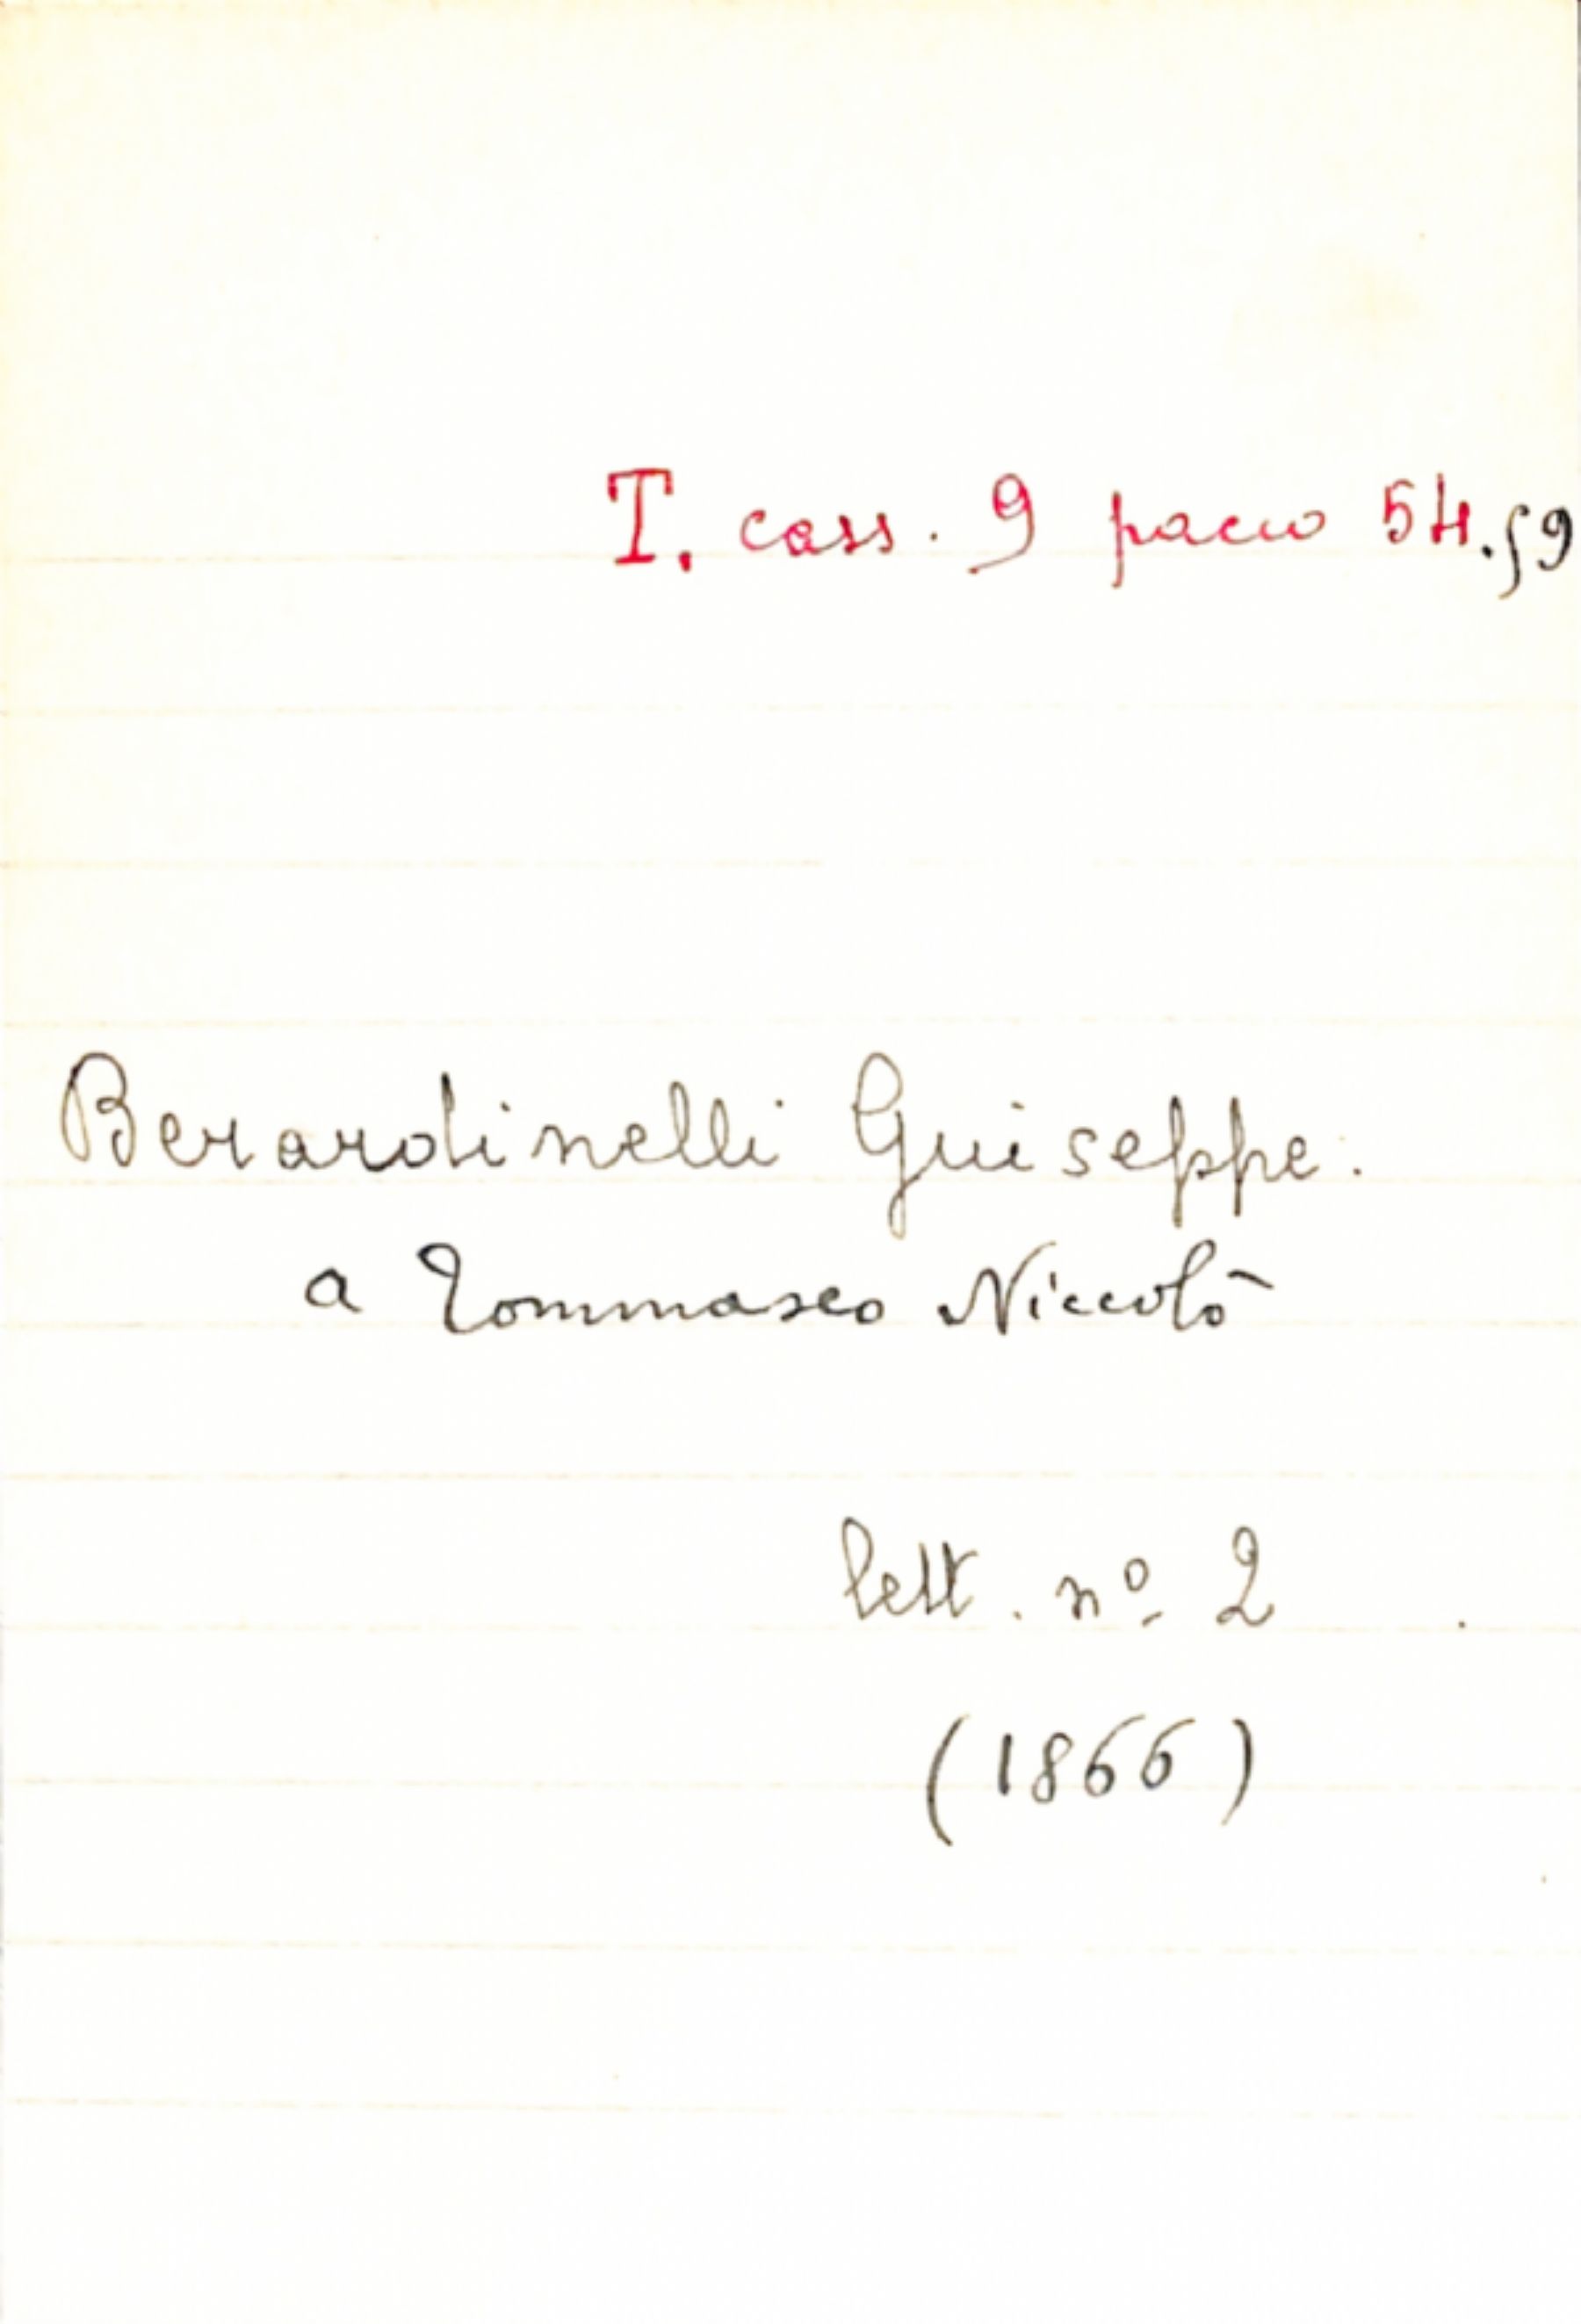 T. cass. 9 pacco 54.59
Berardinelli Giuseppe.
a Tommaseo Niccolò
lett. nº 2
(1866)